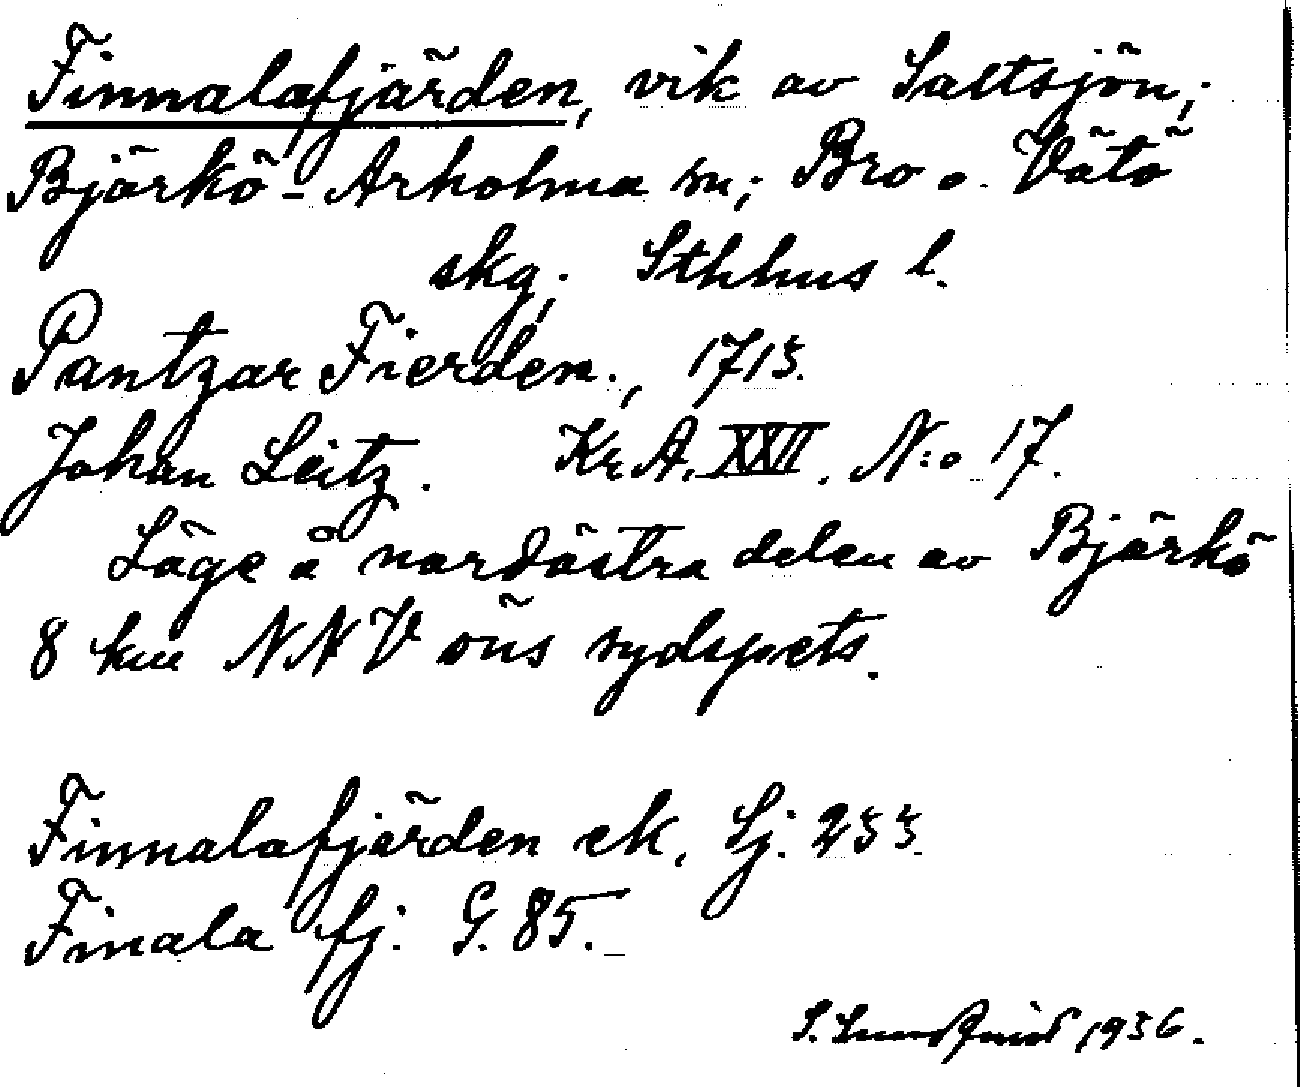 Finnalafjärden, vik av Saltsjön;
Björkö-Arholma sn; Bro o. Vätö
skg; Sthhus l.
Pantzar Fierden., 1713.
Johan Leitz. Kr.A. XXII. N:o 17.
Läge å nordöstra delen av Björkö
8 km NNV öns sydspets.
Finnalafjärden ek. Sj. 233.
Finala fj. G. 85.
S. 1936.